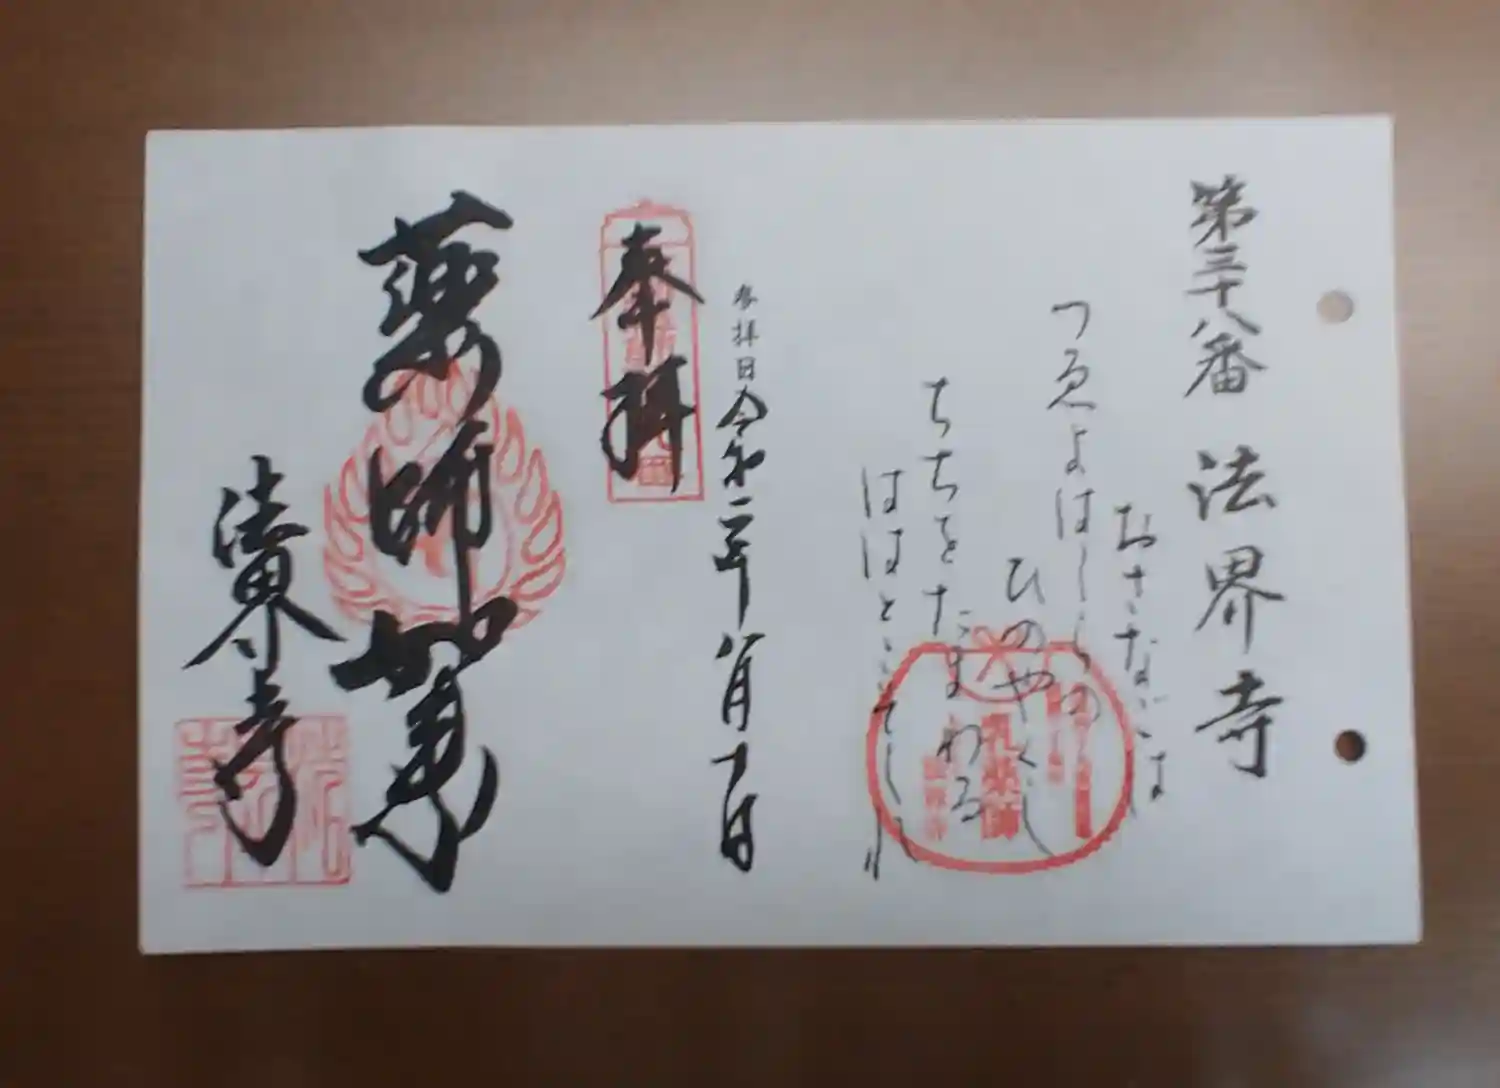 第三十八番 法界寺
おさなごは
つゑよはしらの
ひのやくし
ちちをたまわる
ははとこそしれ
参拝日 令和二年八月十日
奉拝
薬師如来
法界寺